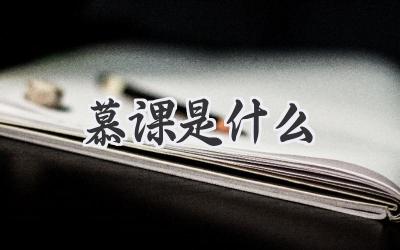 慕课是什么